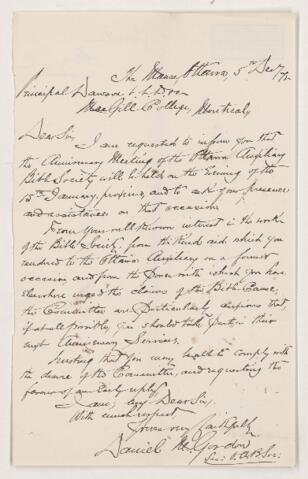 The Manse, Ottawa, 5th Dec /71
Principal Dawson L.L.D.
McGill College, Montreal,
Dear Sir,
I am requested to inform you that
the Anniversary Meeting of the Ottawa Auxiliary
Bible Society will be held on the Evening of the
15th January, proximo, and to ask your presence
and assistance on that occasion.
From your well known interest in the work
of the Bible Society, from the kind aid which you
rendered to the Ottawa Auxiliary on a former
occasion, and from the power with which you have
elsewhere urged the claims of the Bible Cause,
the Committee are particularly desirous that,
if at all possible, you should take part in their
next Anniversary Services.
Trusting that you may be able to comply with
the desire of the Committee, and requesting the
favour of an early reply,
I am, my Dear Sir,
With much respect
Yours very faithfully
Daniel M. Gordon
Sec. O.A.B.Soc.